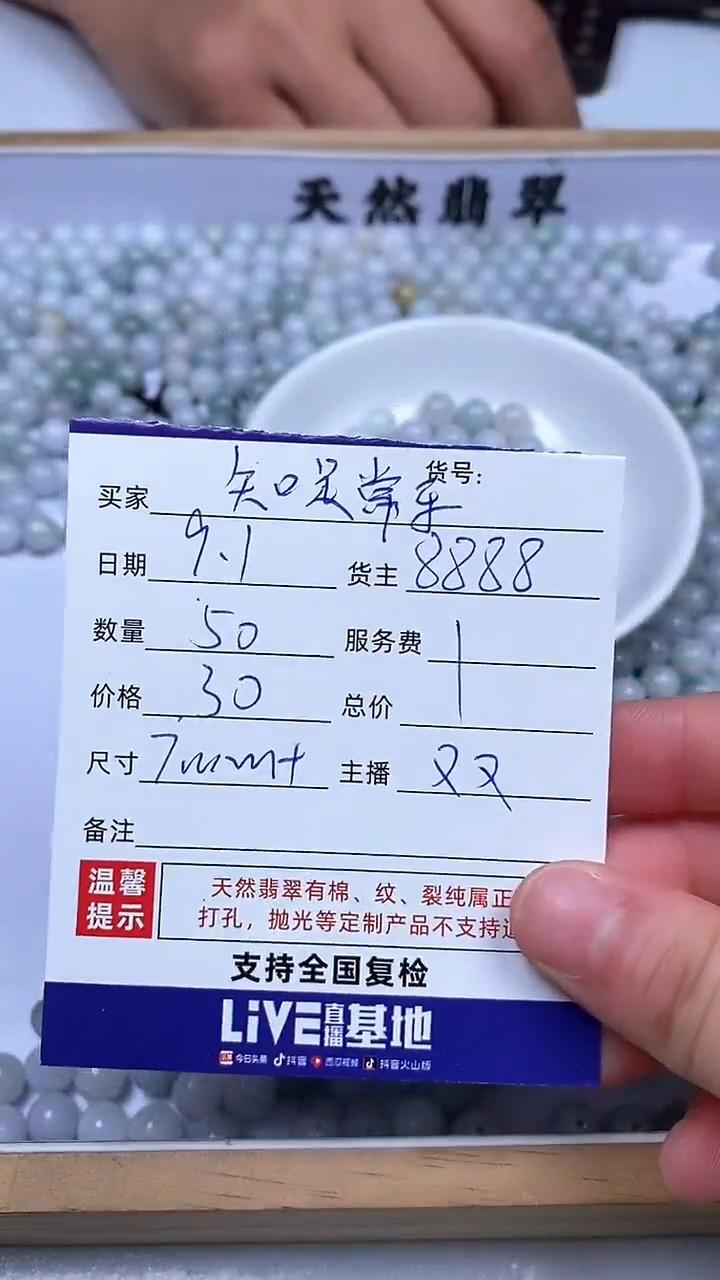 天然翡翠
货号:
买家 知足常乐
日期 9.1 货主 8888
数量 50 服务费
价格 30 总价
尺寸 7mm+ 主播 双
备注
温馨提示
天然翡翠有棉、纹、裂纯属正
打孔，抛光等定制产品不支持
支持全国复检
LiVE直播基地
今日头条 抖音 西瓜视频 抖音火山版